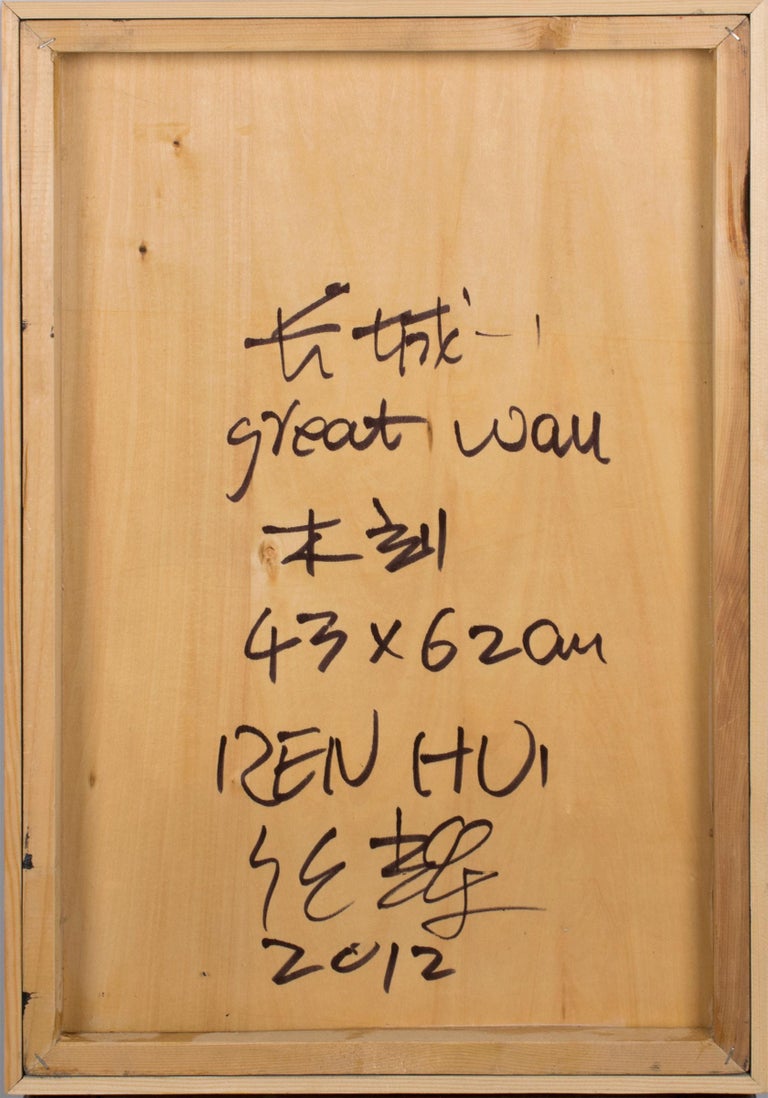 长城一1
great wall
木刻
43×62cm
REN HUI
任
2012